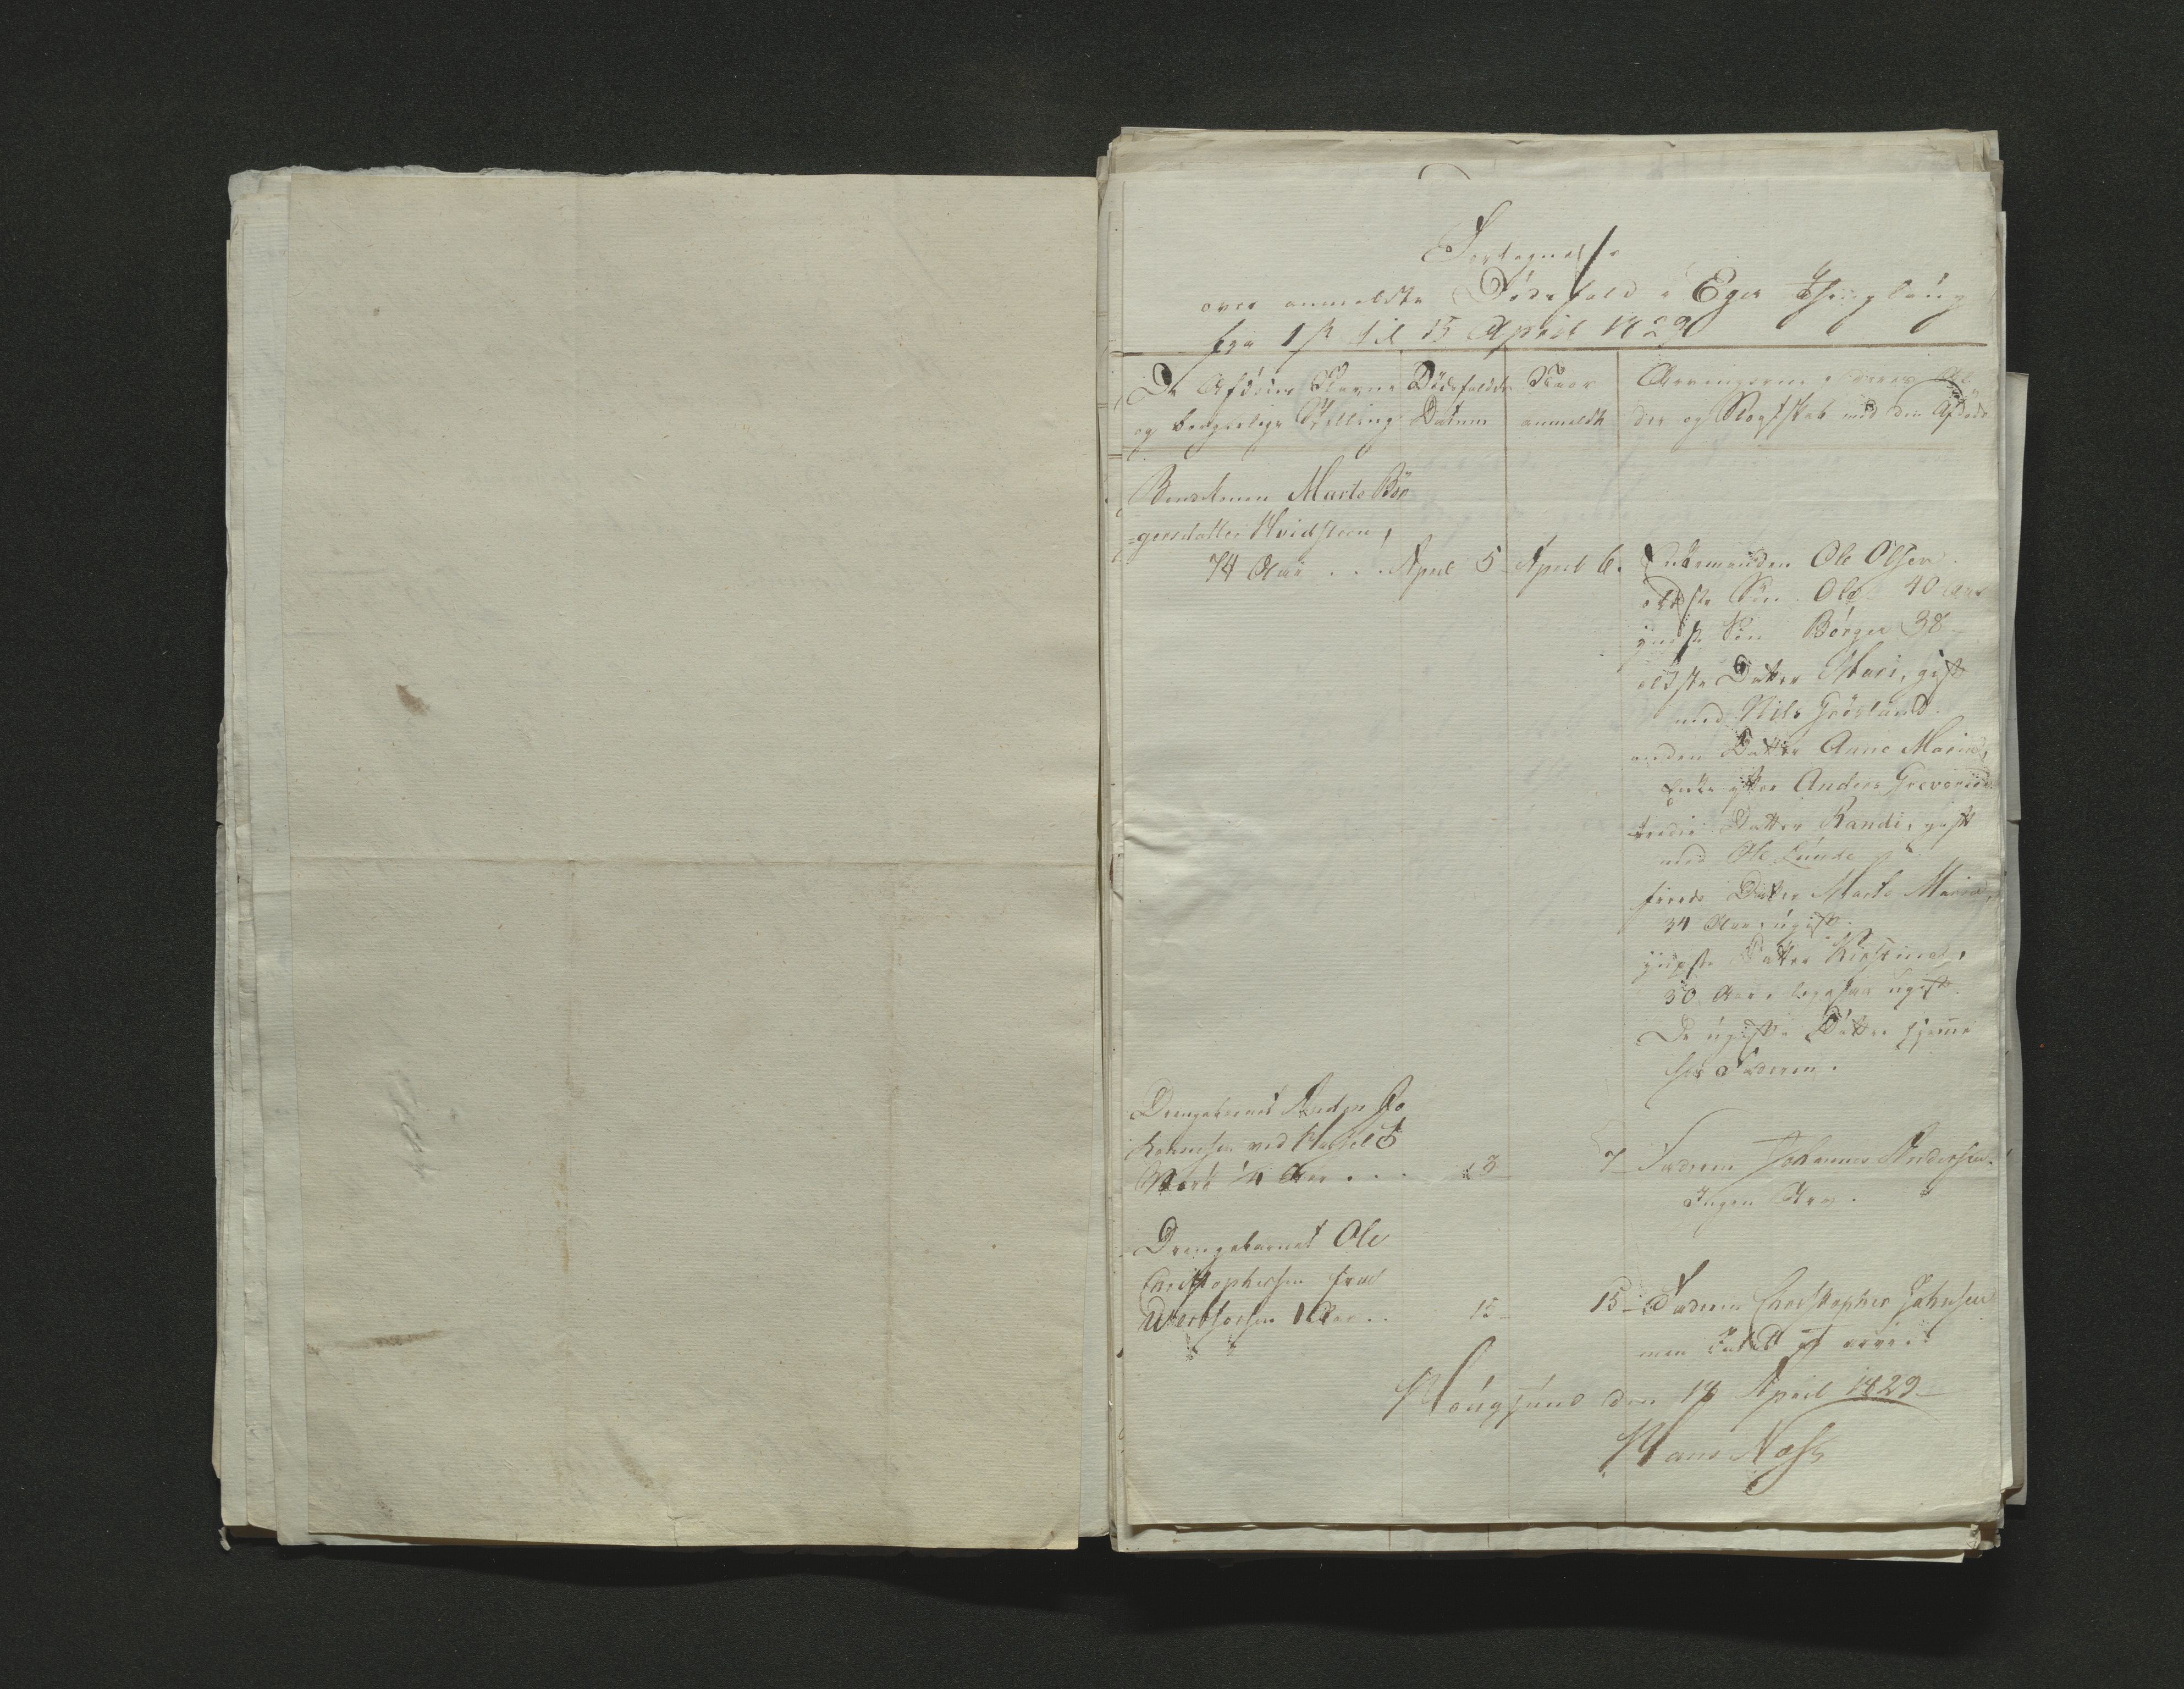 Fortegnelse
over anmeldte Dødsfald i Eger Thinglaug
fra 1ste til 15 April 1829
De Afdødes Navne
og borgerlige Stilling
Dødsfaldets
Datum
Naar
anmeldt
Arvingerne, deres Al
der og Slægtskab med den Afdøde
Bondekonen Marte Bør
=gersdatter Hvidsteen,
74 Aar . . . April 5 April 6. Enkemanden Ole Olsen.
ældste Søn Ole 40 Aar
yngste Søn Børger 38 –
ældste Datter Mari, gift
med Nils Grøsland.
anden Datter Anne Maria,
Enke efter Anders
tredie Datter Randi, gift
med Ole Lunde
fierde Datter Marte Maria,
34 Aar, ugift.
yngste Datter Kirstine,
30 Aar, ligesaa ugift.
De ugifte Døttre hjemme
hos Faderen.
Drengebarnet Anders Jo
hannesen ved Hassel
Værk 1/4 Aar . . . 3 – 7 – Faderen Johannes Andersen.
Ingen Arv.
Drengebarnet Ole
Christophersen fra
1 Aar . . 15 – 15 – Faderen Christopher Johnsen
men Intet at arve.
Hougsund den 18 April 1829
Hans Næss